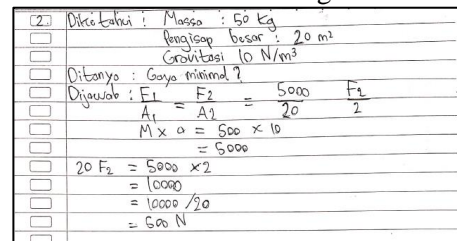 2. Diketahui : Massa : 50 kg
Pengisap besar : 20 m²
Gravitasi 10 N/m³
Ditanya : Gaya minimal ?
Dijawab : F1/A1 = F2/A2 = 5000/20 F2/2
M x a = 500 x 10
= 5000
20 F2 = 5000 x2
= 10000
= 10000 /20
= 500 N